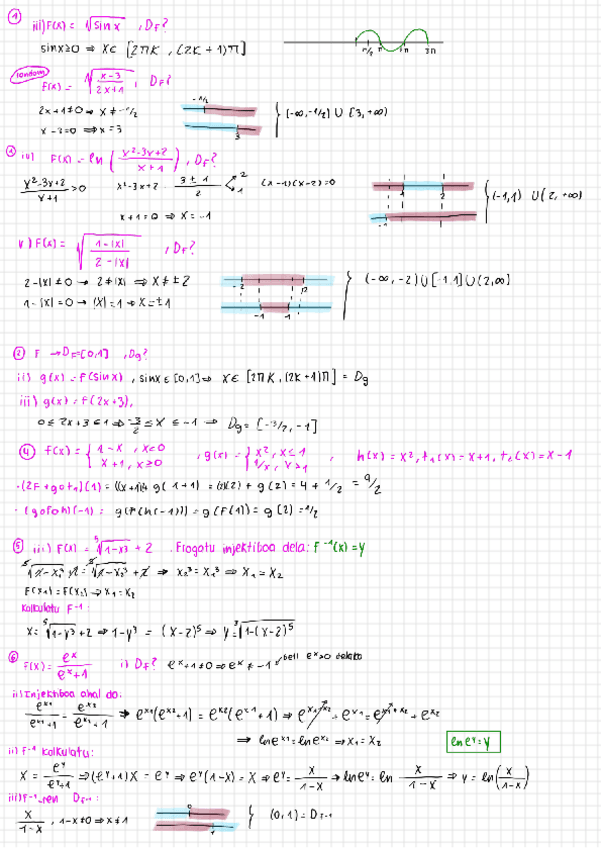 ①
iii) F(x) = √sin x , D_F?
sin x ≥ 0 ⇒ x ∈ [2πK, (2K+1)π]
π/2 π 2π 3π
random
F(x) = √((x-3)/(2x+1)), D_F?
2x+1≠0 ⇒ x ≠ -1/2
x-3=0 ⇒ x=3
-1/2
3
(-∞,-1/2) ∪ [3,+∞)
① iv) F(x) = ln((x²-3x+2)/(x+1)), D_F?
(x²-3x+2)/(x+1) > 0 x²-3x+2 (3±1)/2 2 1 (x-1)(x-2)=0
x+1=0 ⇒ x=-1
1 2
-1
(-1,1) ∪ (2,+∞)
v) F(x) = √((1-|x|)/(2-|x|)), D_F?
2-|x|≠0 → 2≠|x| ⇒ x≠±2
1-|x|=0 → |x|=1 → x=±1
-2 2
-1 -1
(-∞,-2) ∪ [-1,1] ∪ (2,∞)
② F → D_F=[0,1] , D_g?
ii) g(x) = F(sin x) , sin x ∈ [0,1] ⇒ x ∈ [2πK, (2K+1)π] = D_g
iii) g(x) = F(2x+3),
0 ≤ 2x+3 ≤ 1 ⇒ -3/2 ≤ x ≤ -1 ⇒ D_g = [-3/2, -1]
④ f(x) = { 1-x, x<0 ; x+1, x≥0 , g(x) = { x², x≤1 ; 1/x, x>1 , h(x) = x², t₁(x) = x+1, t₂(x) = x-1
·(2F+g∘t₁)(1) = ((x+1)2+g(1+1) = (2)(2)+g(2) = 4+1/2 = 9/2
·(g∘f∘h)(-1) = g(f(h(-1))) = g(f(1)) = g(2) = 1/2
⑤ iii) F(x) = ⁵√(1-x³) + 2 . Frogatu injektiboa dela: F⁻¹(x) = y
⁵√(1-x₁³) + 2 = ⁵√(1-x₂³) + 2 ⇒ x₂³ = x₁³ ⇒ x₁ = x₂
F(x₁) = F(x₂) → x₁ = x₂
Kalkulatu F⁻¹:
x = ⁵√(1-y³) + 2 ⇒ 1-y³ = (x-2)⁵ ⇒ y = ³√(1-(x-2)⁵)
⑥ F(x) = eˣ/(eˣ+1) i) D_F? eˣ+1≠0 ⇒ eˣ ≠ -1 beti eˣ>0 delako
ii) Injektiboa ahal da:
eˣ¹/(eˣ¹+1) = eˣ²/(eˣ²+1) ⇒ eˣ¹(eˣ²+1) = eˣ²(eˣ¹+1) ⇒ eˣ¹⁺ˣ² + eˣ¹ = eˣ¹⁺ˣ² + eˣ²
⇒ ln eˣ¹ = ln eˣ² ⇒ x₁ = x₂ ln eʸ = y
ii) F⁻¹ kalkulatu:
x = eʸ/(eʸ+1) ⇒ (eʸ+1)x = eʸ ⇒ eʸ(1-x) = x ⇒ eʸ = x/(1-x) → ln eʸ = ln x/(1-x) ⇒ y = ln(x/(1-x))
iii) F⁻¹-ren D_F⁻¹:
x/(1-x) , 1-x≠0 ⇒ x≠1
0
1
(0,1) = D_F⁻¹